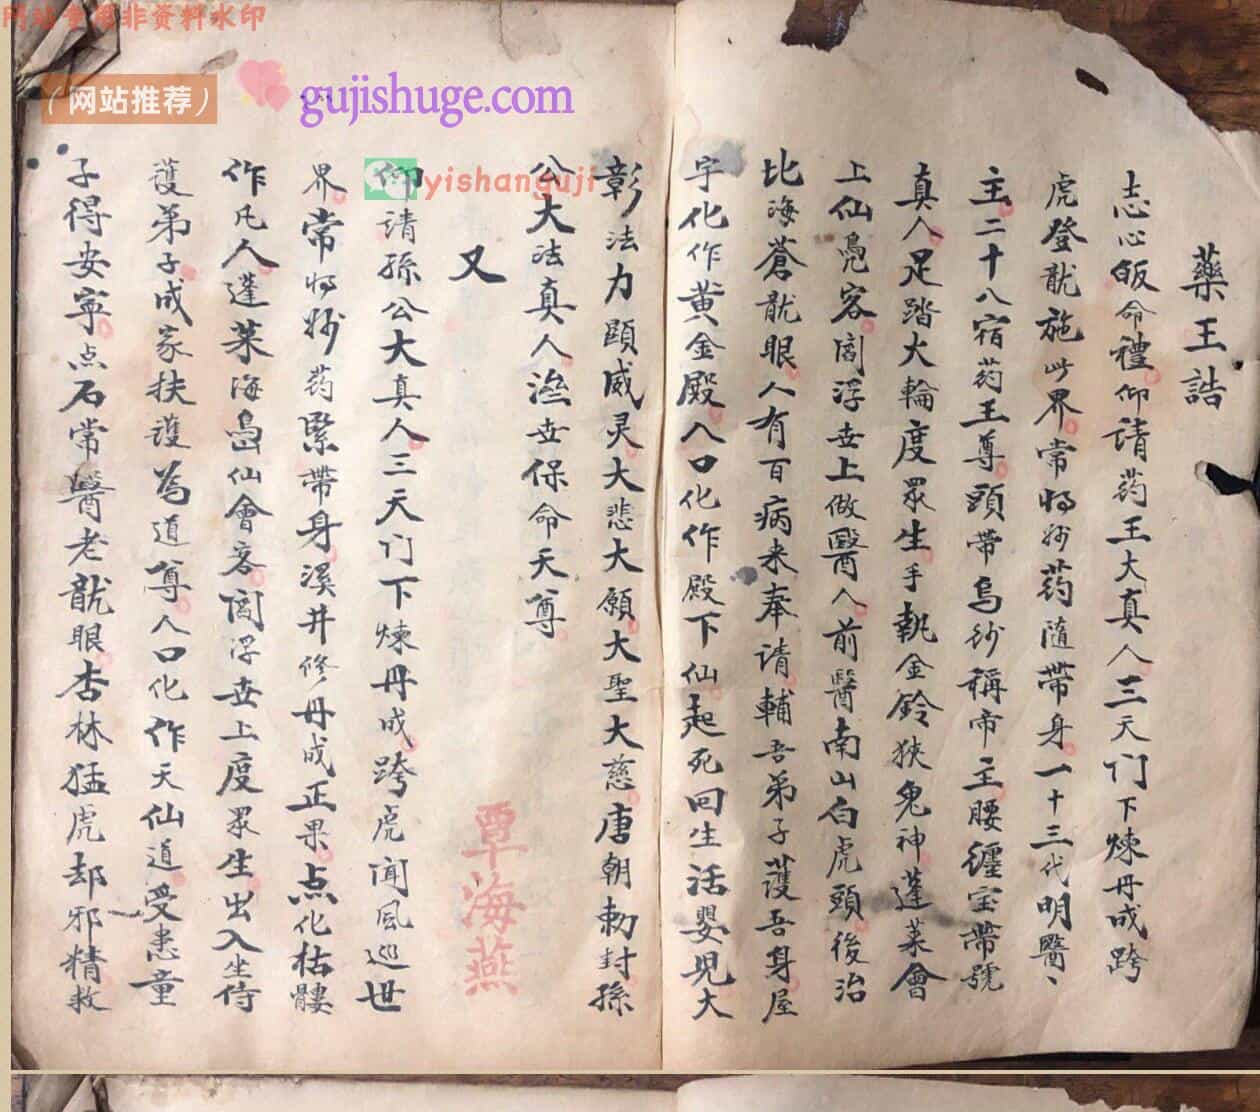 网站专用非资料水印
(网站推荐)
gujishuge.com
yishanguji
藥王誥
志心皈命禮仰請药王大真人三天门下煉丹成跨
虎登龍施此界常将妙药隨帶身一十三代明醫、
主二十八宿药王尊頭帶烏纱稱帝主腰纏宝帶號
真人足踏大輪度眾生手執金鈴狹鬼神蓬萊會
上仙凫客阎浮世上做醫人前醫南山白虎頭後治
比海蒼龍眼人有百病来奉请輔吾弟子護吾身屋
宇化作黄金殿人口化作殿下仙起死回生活嬰児大
彰法力顕威灵大悲大願大聖大慈唐朝勅封孫
公大法真人濟世保命天尊
又
仰請孫公大真人三天门下煉丹成跨虎闻風巡世
界常将妙药緊帶身溪井修丹成正果点化枯髏
作凡人蓬莱海島仙會客阎浮世上度眾生出入坐侍
護弟子成家扶護為道尊人口化作天仙道受患童
子得安寧点石常醫老龍眼杏林猛虎却邪精救
覃海燕